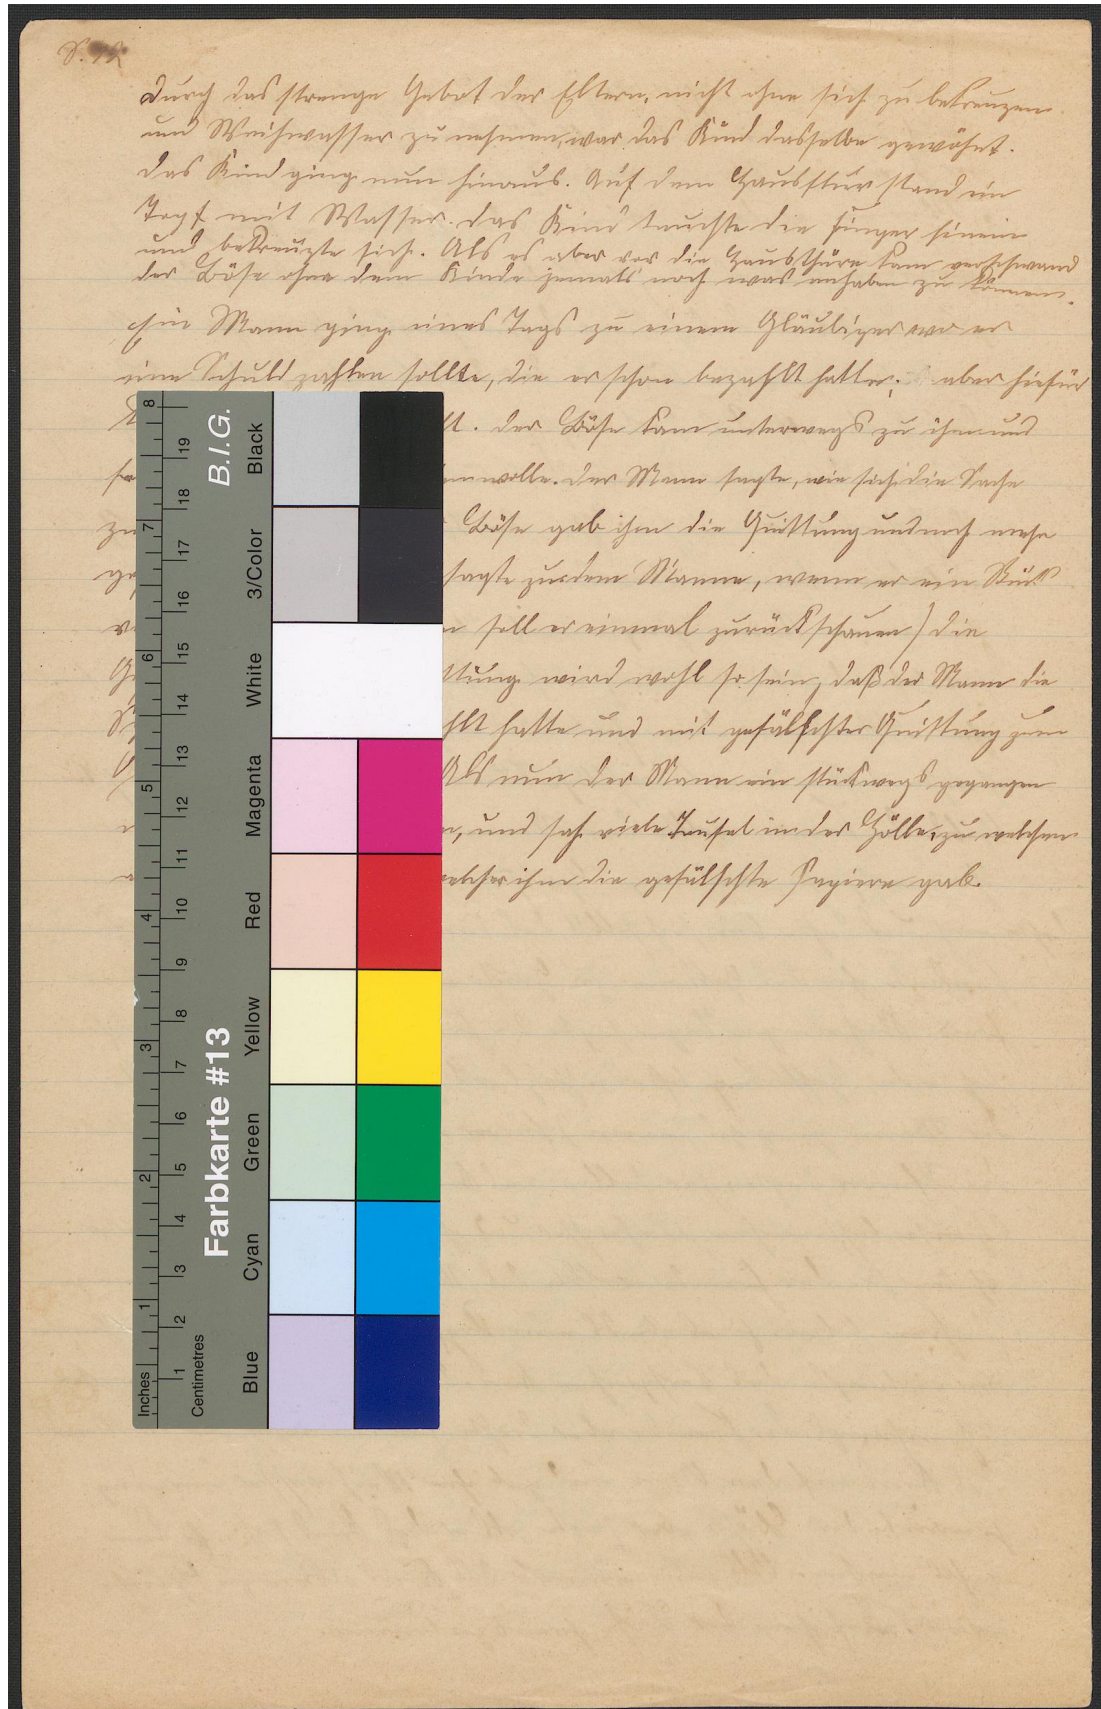 S. 12
Durch das strenge Gebot der Eltern, nicht ohne sich zu bekreuzen
und Weihwasser zu nehmen, war das Kind dasselbe gewöhnt.
Das Kind ging nun hinaus. Auf dem Hausflur stand ein
Topf mit Wasser. Das Kind tauchte die Finger hinein
und bekreuzte sich. Als es aber vor die Hausthüre kam verschwand
der Böse ohne dem Kinde jemals noch was anhaben zu können.
Ein Mann ging eines Tags zu einem Gläubiger wo er
eine Schuld zahlen sollte, die er schon bezahlt hatte, aber hiefür
Der Böse kam unterwegs zu ihm und
wolle. Der Mann sagte, wie sich die Sache
zu Böse gab ihm die Quittung und noch mehr
sagte zu dem Manne, wenn er ein Stück
soll er einmal zurückschauen) die
wird wohl so sein, daß der Mann die
hatte und mit gefälschter Quittung zum
Als nun der Mann ein stückwegs gegangen
und sah viele Teufel in der Hölle, zu welchen
welcher ihm die gefälschte Papiere gab.
B.I.G.
Farbkarte #13
Black
3/Color
White
Magenta
Red
Yellow
Green
Cyan
Blue
Inches 1 2 3 4 5 6 7 8
Centimetres 1 2 3 4 5 6 7 8 9 10 11 12 13 14 15 16 17 18 19